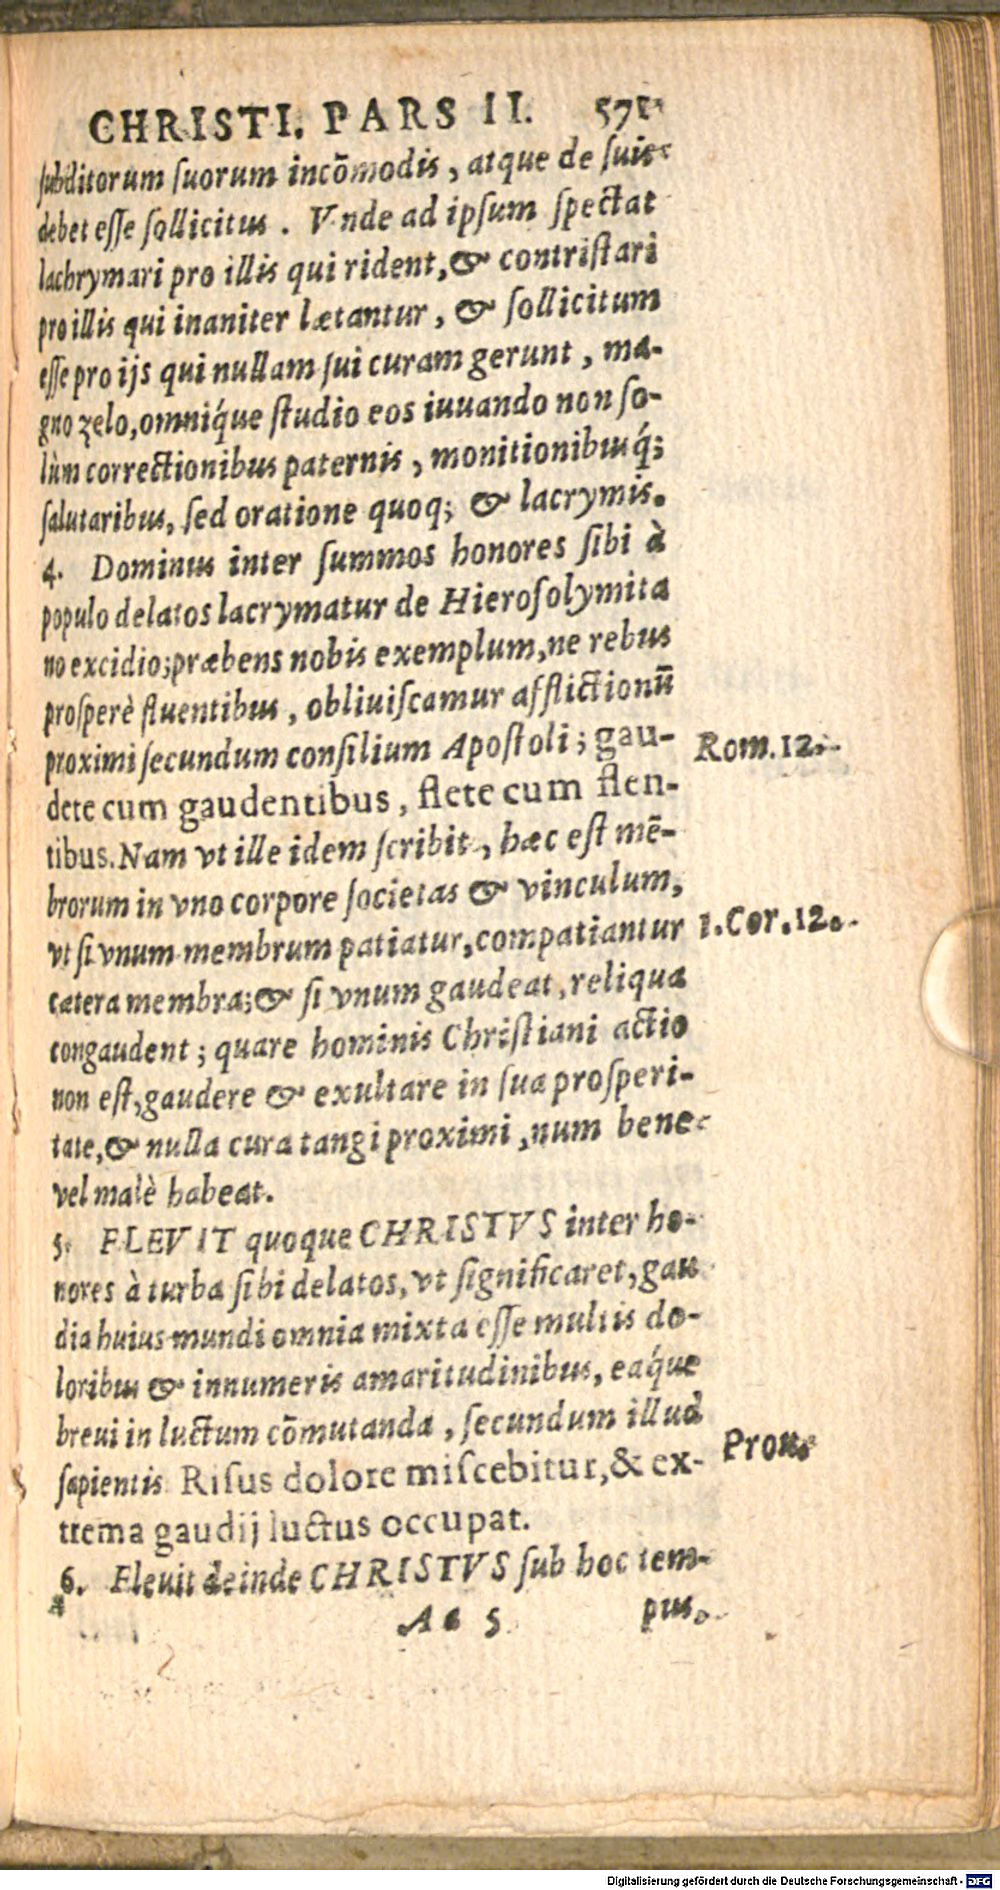 CHRISTI. PARS II. 571
subditorum suorum incõmodis, atque de suis
debet esse sollicitus. Vnde ad ipsum spectat
lachrymari pro illis qui rident, & contristari
pro illis qui inaniter lætantur, & sollicitum
esse pro ijs qui nullam sui curam gerunt, ma-
gno zelo, omniq́ue studio eos iuuando non so-
lùm correctionibus paternis, monitionibusq́;
salutaribus, sed oratione quoq; & lacrymis.
4. Dominus inter summos honores sibi à
populo delatos lacrymatur de Hierosolymita
no excidio; præbens nobis exemplum, ne rebus
prosperè fluentibus, obliuiscamur afflictionũ
proximi secundum consilium Apostoli; gau-
Rom. 12.
dete cum gaudentibus, flete cum flen-
tibus. Nam vt ille idem scribit, hæc est mẽ-
brorum in vno corpore societas & vinculum,
vt si vnum membrum patiatur, compatiantur
1. Cor. 12.
cætera membra; & si vnum gaudeat, reliqua
congaudent; quare hominis Christiani actio
non est, gaudere & exultare in sua prosperi-
tate, & nulla cura tangi proximi, num bene
vel malè habeat.
5. FLEVIT quoque CHRISTVS inter ho-
nores à turba sibi delatos, vt significaret, gau
dia huius mundi omnia mixta esse multis do-
loribus & innumeris amaritudinibus, eaq́ue
breui in luctum cõmutanda, secundum illud
sapientis Risus dolore miscebitur, & ex-
Prou.
trema gaudij luctus occupat.
6. Fleuit deinde CHRISTVS sub hoc tem-
A a 5 pus,
Digitalisierung gefördert durch die Deutsche Forschungsgemeinschaft - DFG